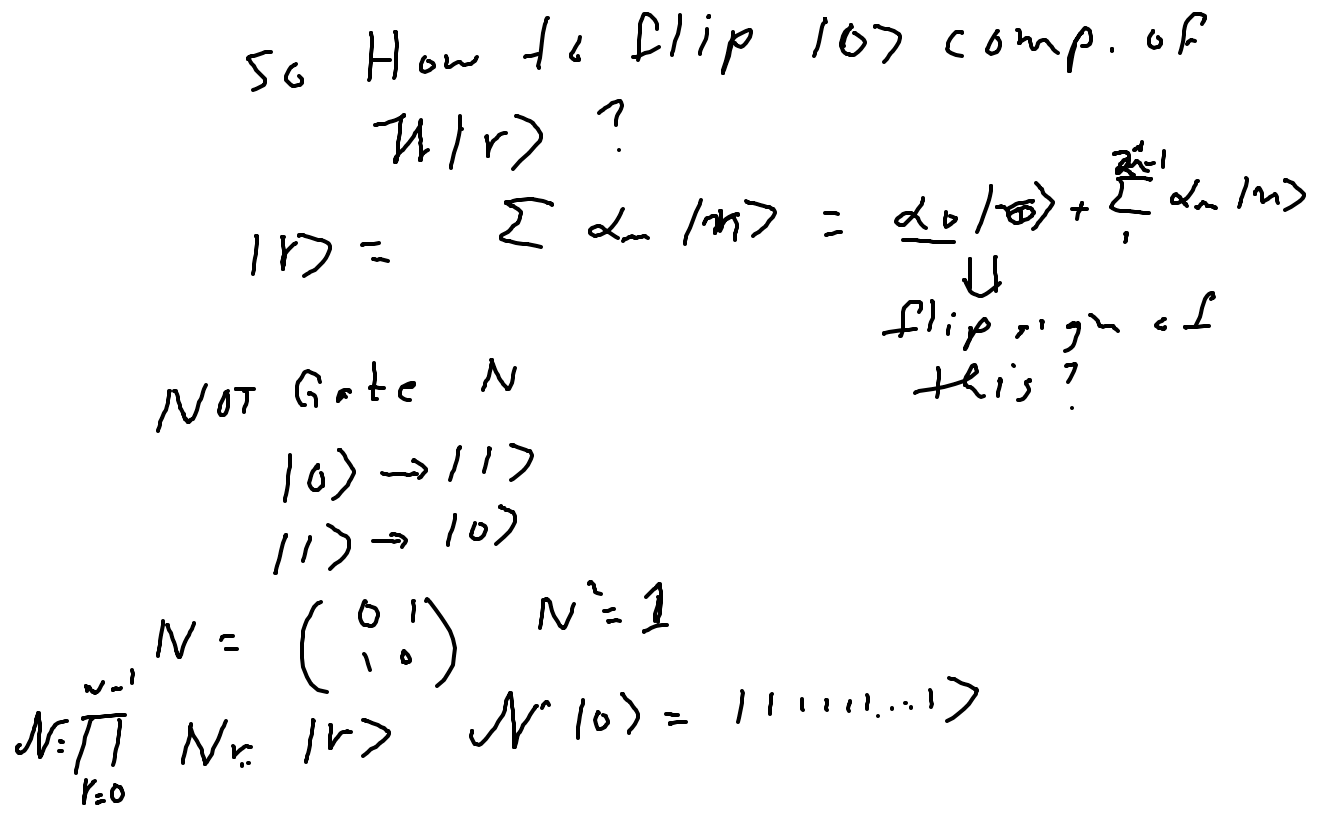 So How to flip |0> comp. of
H|r> ?
|r> = Σ αₙ |n> = α₀ |0> + Σ₁^{2ⁿ-1} αₙ |n>
⇓
flip sign of
this?
NOT Gate N
|0> → |1>
|1> → |0>
N = ( 0 1
1 0 ) N² = 1
𝒩 = ∏_{r=0}^{n-1} N_r |r> 𝒩 |0> = |111111...1>